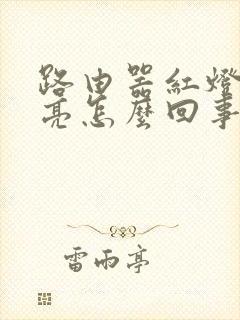 路由器紅燈
亮怎麼回事
雷雨亭